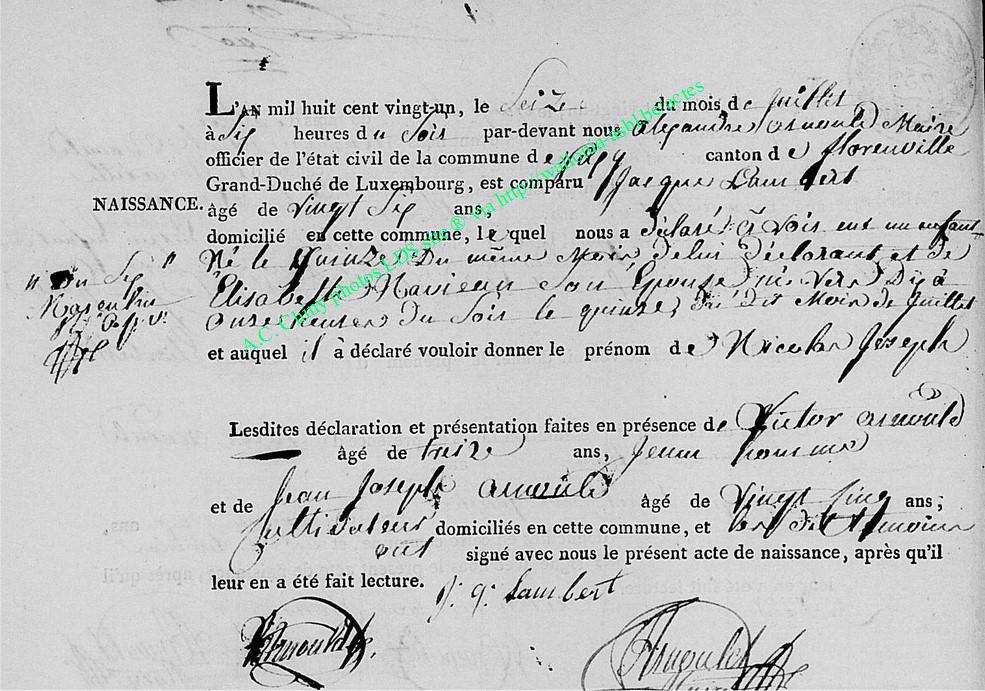 L'AN mil huit cent vingt-un, le Seize du mois de juillet
à Six heures du Soir par-devant nous Alexandre Arnould Maire
officier de l'état civil de la commune de canton de florenville
Grand-Duché de Luxembourg, est comparu Jacque Lambert
NAISSANCE. âgé de vingt Six ans,
domicilié en cette commune, le quel nous a déclaré à vois eut un enfant
Né le quinze Du même Mois de lui déclarant et de
Elisabeth Son Epouse
onze heures du Soir le quinze du dit Mois de juillet
et auquel il à déclaré vouloir donner le prénom de Nicolas Joseph
"
"
Masculin
Lesdites déclaration et présentation faites en présence de Victor Arnould
âgé de treize ans, jeune homme
et de Jean Joseph Arnould âgé de vingt cinq ans ;
Cultivateur domiciliés en cette commune, et les dit témoins
ont signé avec nous le présent acte de naissance, après qu'il
leur en a été fait lecture.
j. q. Lambert
Arnould
Arnould
A.C. Chiny photos LDS site ® via http://www.